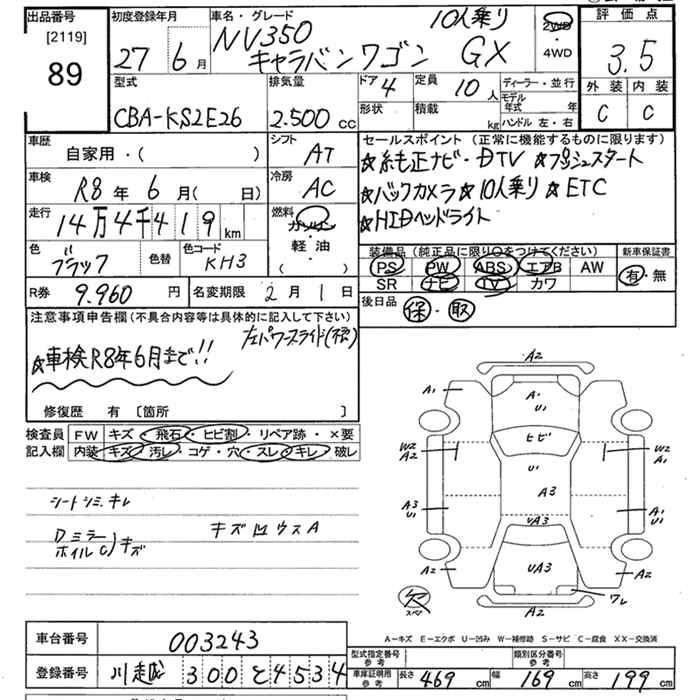 出品番号 初度登録年月 車名・グレード 10人乗り 2WD 評価点
[2119] 27年6月 NV350 キャラバンワゴン GX 4WD 3.5
89 外装 内装
型式 排気量 ドア 4 定員 10人 ディーラー・並行 C C
CBA-KS2E26 2.500 cc 形状 積載 kg モデル年式 年
ハンドル 左・右
車歴 シフト セールスポイント (正常に機能するものに限ります)
自家用・( ) AT ☆純正ナビ・DTV ☆プッシュスタート
車検 冷房 ☆バックカメラ ☆10人乗り ☆ETC
R8年6月( 日) AC ☆HIDヘッドライト
走行 燃料
14万4千419km ガソリン
軽・油
( )
色 色替 色コード 装備品 (純正品に限り○をつけてください) 新車保証書
ブラック KH3 PS PW ABS エアB AW 有・無
SR ナビ TV カワ
R券 9.960円 名変期限 2月1日 後日品 保・取
注意事項申告欄(不具合内容等は具体的に記入して下さい)
左パワースライド
☆車検R8年6月まで!!
修復歴 有 [箇所 ]
検査員 FW キズ・飛石・ヒビ割・リペア跡・×要
記入欄 内装 キズ・汚レ・コゲ・穴・スレ・キレ・破レ
シートシミ、キレ
Dミラー
ホイルC キズ
キズ凹ウスA
A2
A1 A U1 A2
ヒビ
W2 A2 U1 W2 A1
A3 U1 A3 A1 U1
UA3
A2 UA3 A2
欠 ワレ
スペア A2
A-キズ E-エクボ U-凹み W-補修跡 S-サビ C-腐食 XX-交換済
車台番号 003243 型式指定番号 参考 類別区分番号 参考
登録番号 川越 300 と 4534 車庫証明用 参考 長さ 469 cm 幅 169 cm 高さ 199 cm